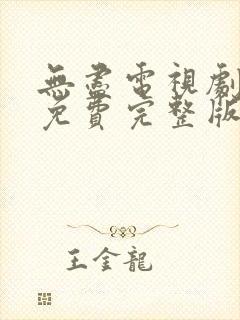 無盡電視劇
免費完整版
王金龍